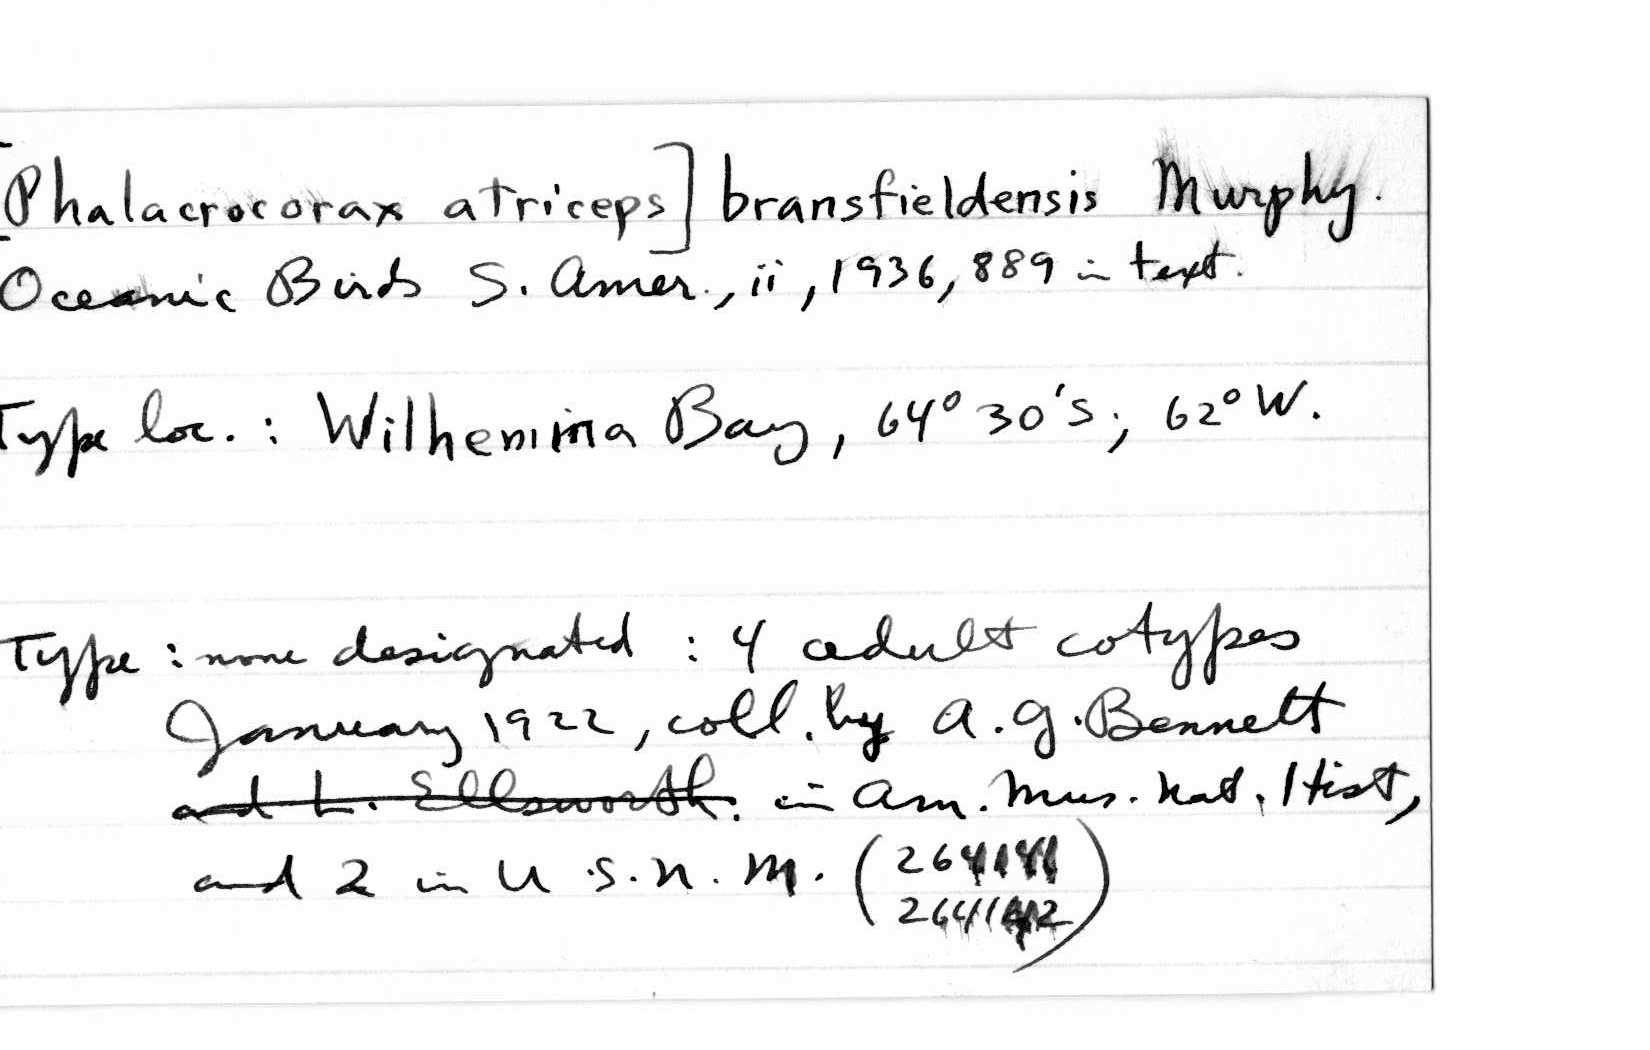 [Phalacrocorax atriceps] bransfieldensis Murphy.
Oceanic Birds S. Amer., ii, 1936, 889 in text.
Type loc. : Wilhemina Bay, 64° 30's; 62° W.
Type : none designated : 4 adult cotypes
January 1922, coll. by A. G. Bennett
and L. Ellsworth. in Am. Mus. Nat. Hist,
and 2 in U.S.N.M. (